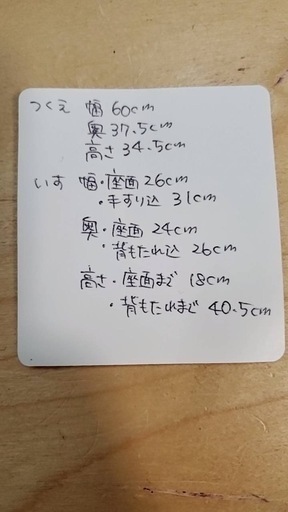 つくえ 幅 60cm
奥 37.5cm
高さ 34.5cm
いす 幅・座面 26cm
・手すり込 31cm
奥・座面 24cm
・背もたれ込 26cm
高さ・座面まで 18cm
・背もたれまで 40.5cm